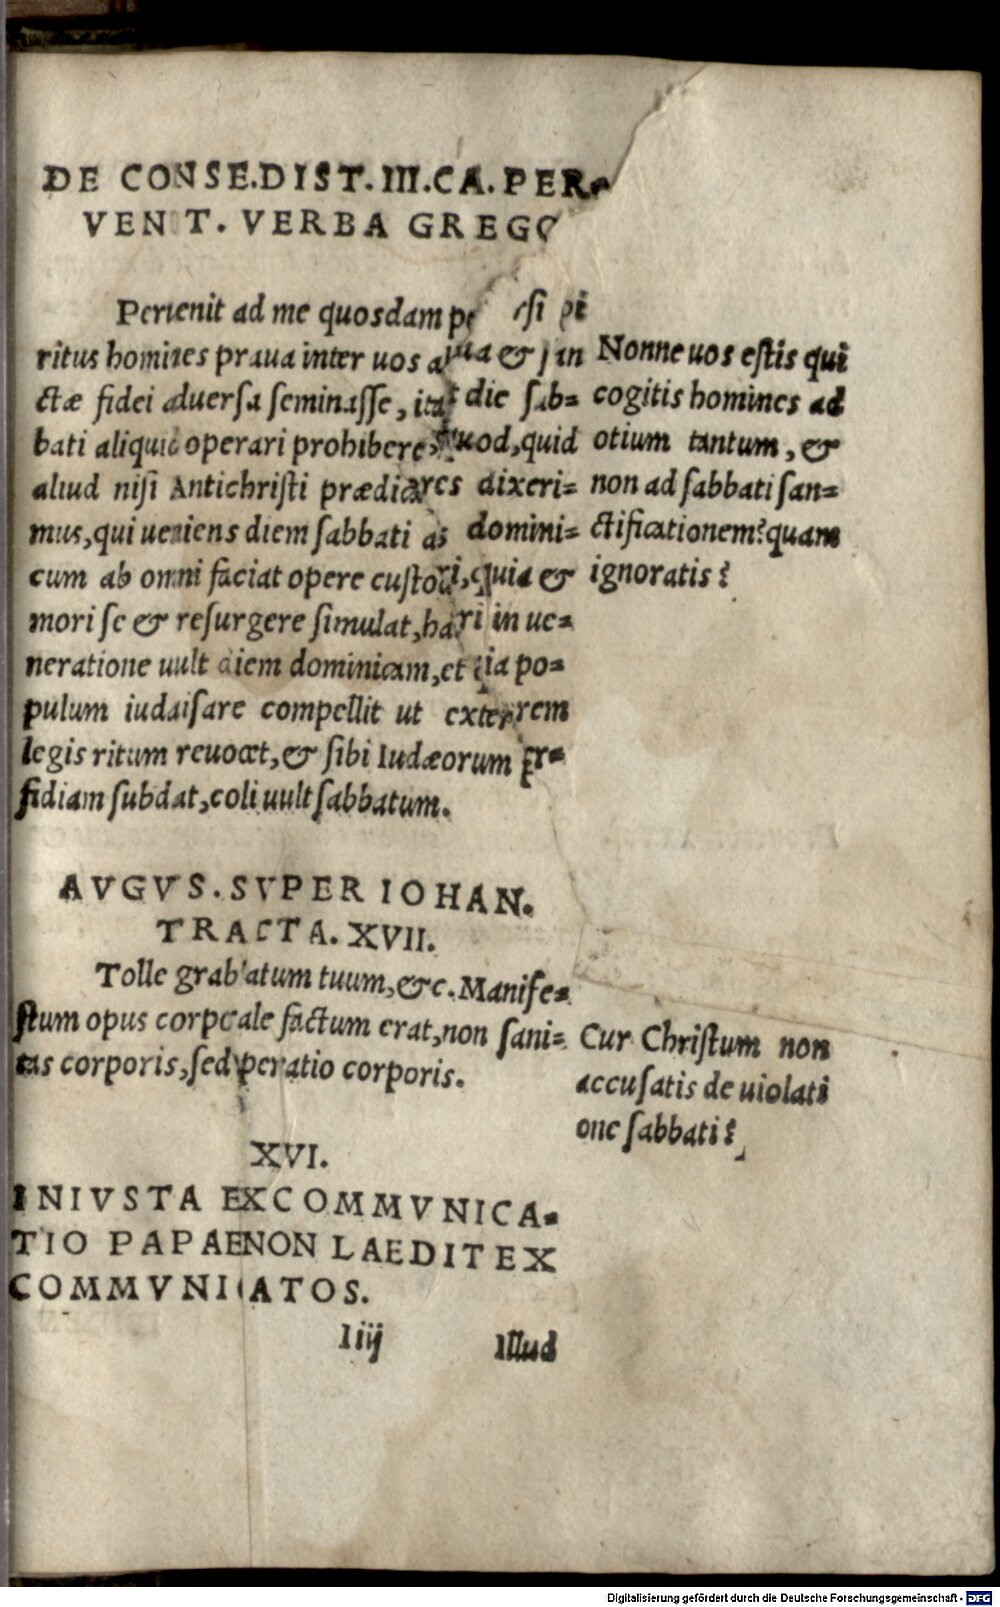 DE CONSE.DIST.III.CA.PER-
VEN T. VERBA GREGO
Peruenit ad me quosdam
ritus homines praua inter uos &
ctæ fidei aduersa seminasse, die sab-
bati aliquid operari prohibere, quod, quid
aliud nisi Antichristi prædicatores dixeri-
mus, qui ueniens diem sabbati ac domini-
cum ab omni faciat opere custodiri, quia &
mori se & resurgere simulat, haberi in ue-
neratione uult diem dominicam, et quia po-
pulum iudaisare compellit ut exteriorem
legis ritum reuocet, & sibi Iudæorum per-
fidiam subdat, coli uult sabbatum.
Nonne uos estis qui
cogitis homines ad
otium tantum, &
non ad sabbati san-
ctificationem? quam
ignoratis?
AVGVS. SVPER IOHAN.
TRACTA. XVII.
Tolle grabatum tuum, &c. Manife-
stum opus corporale factum erat, non sani-
tas corporis, sed operatio corporis.
Cur Christum non
accusatis de uiolati
one sabbati?
XVI.
INIVSTA EXCOMMVNICA-
TIO PAPAE NON LAEDIT EX
COMMVNICATOS.
I iij
Illud
Digitalisierung gefördert durch die Deutsche Forschungsgemeinschaft - DFG